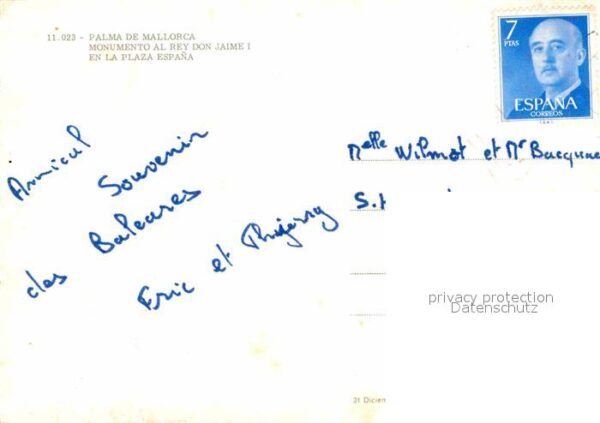 11.023 - PALMA DE MALLORCA
MONUMENTO AL REY DON JAIME I
EN LA PLAZA ESPAÑA
7
PTAS
ESPAÑA
CORREOS
Amical
Souvenir
des Baleares
Eric et Thierry
Melle Wilmot et Mr
S.t
privacy protection
Datenschutz
21 Dicien